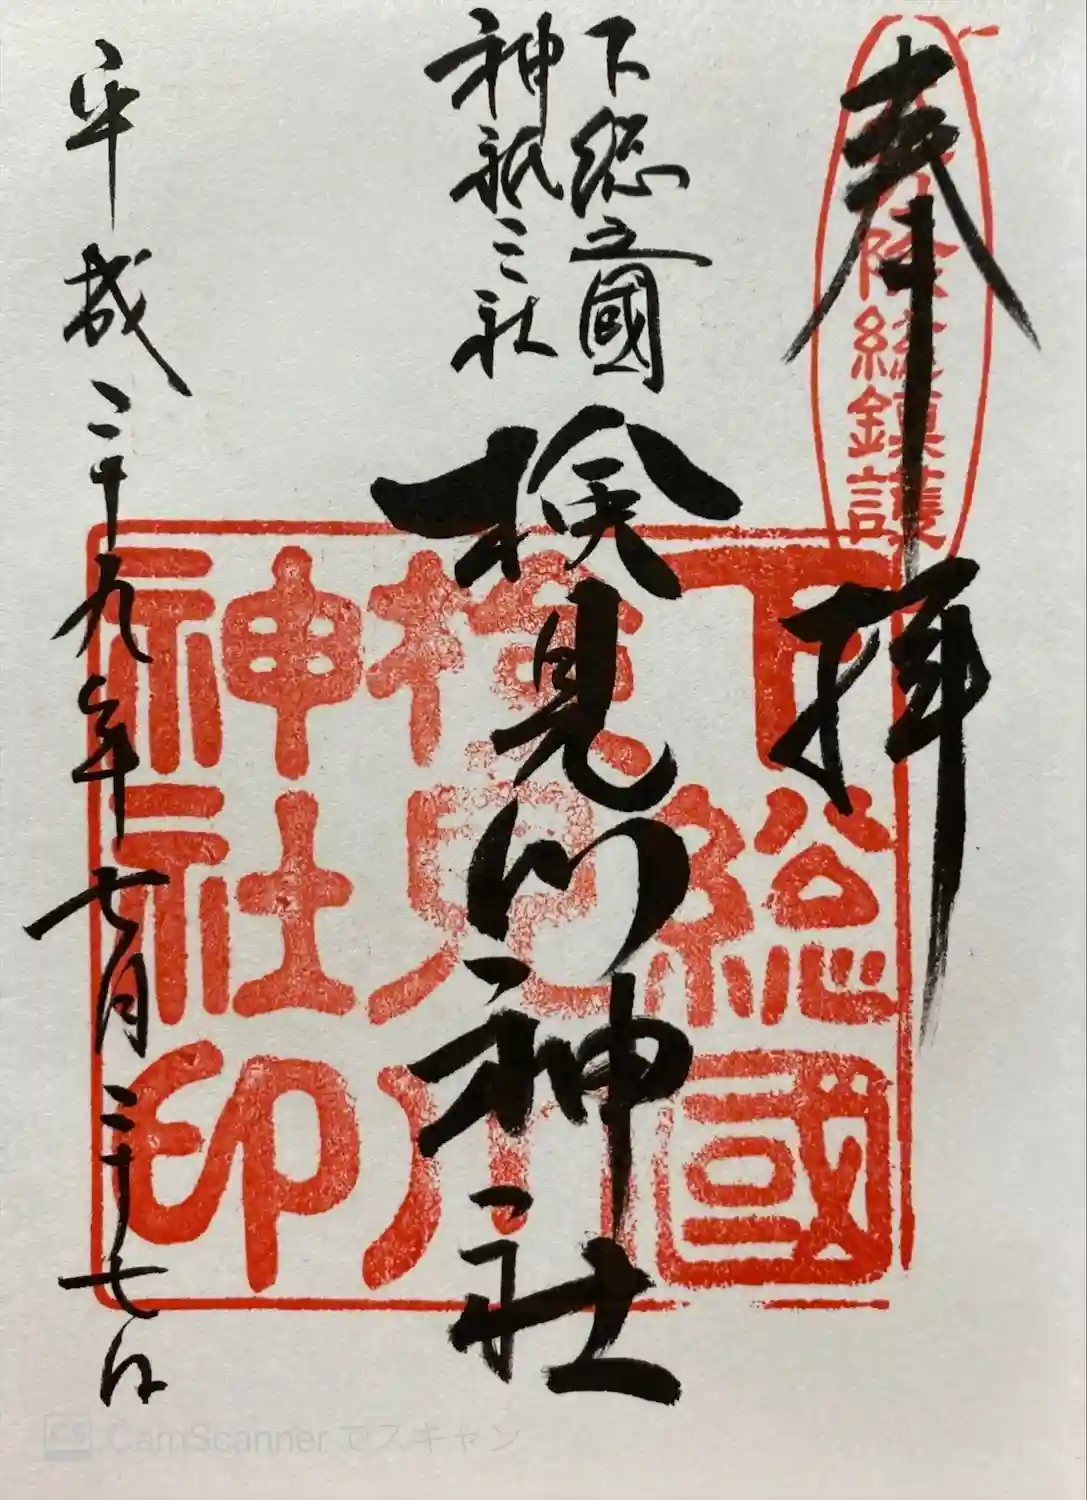 奉拝
八方除総鎮護
下総之國
神祇三社
検見川神社
下総國
検見川
神社印
平成二十九年七月二十七日
CS CamScannerでスキャン